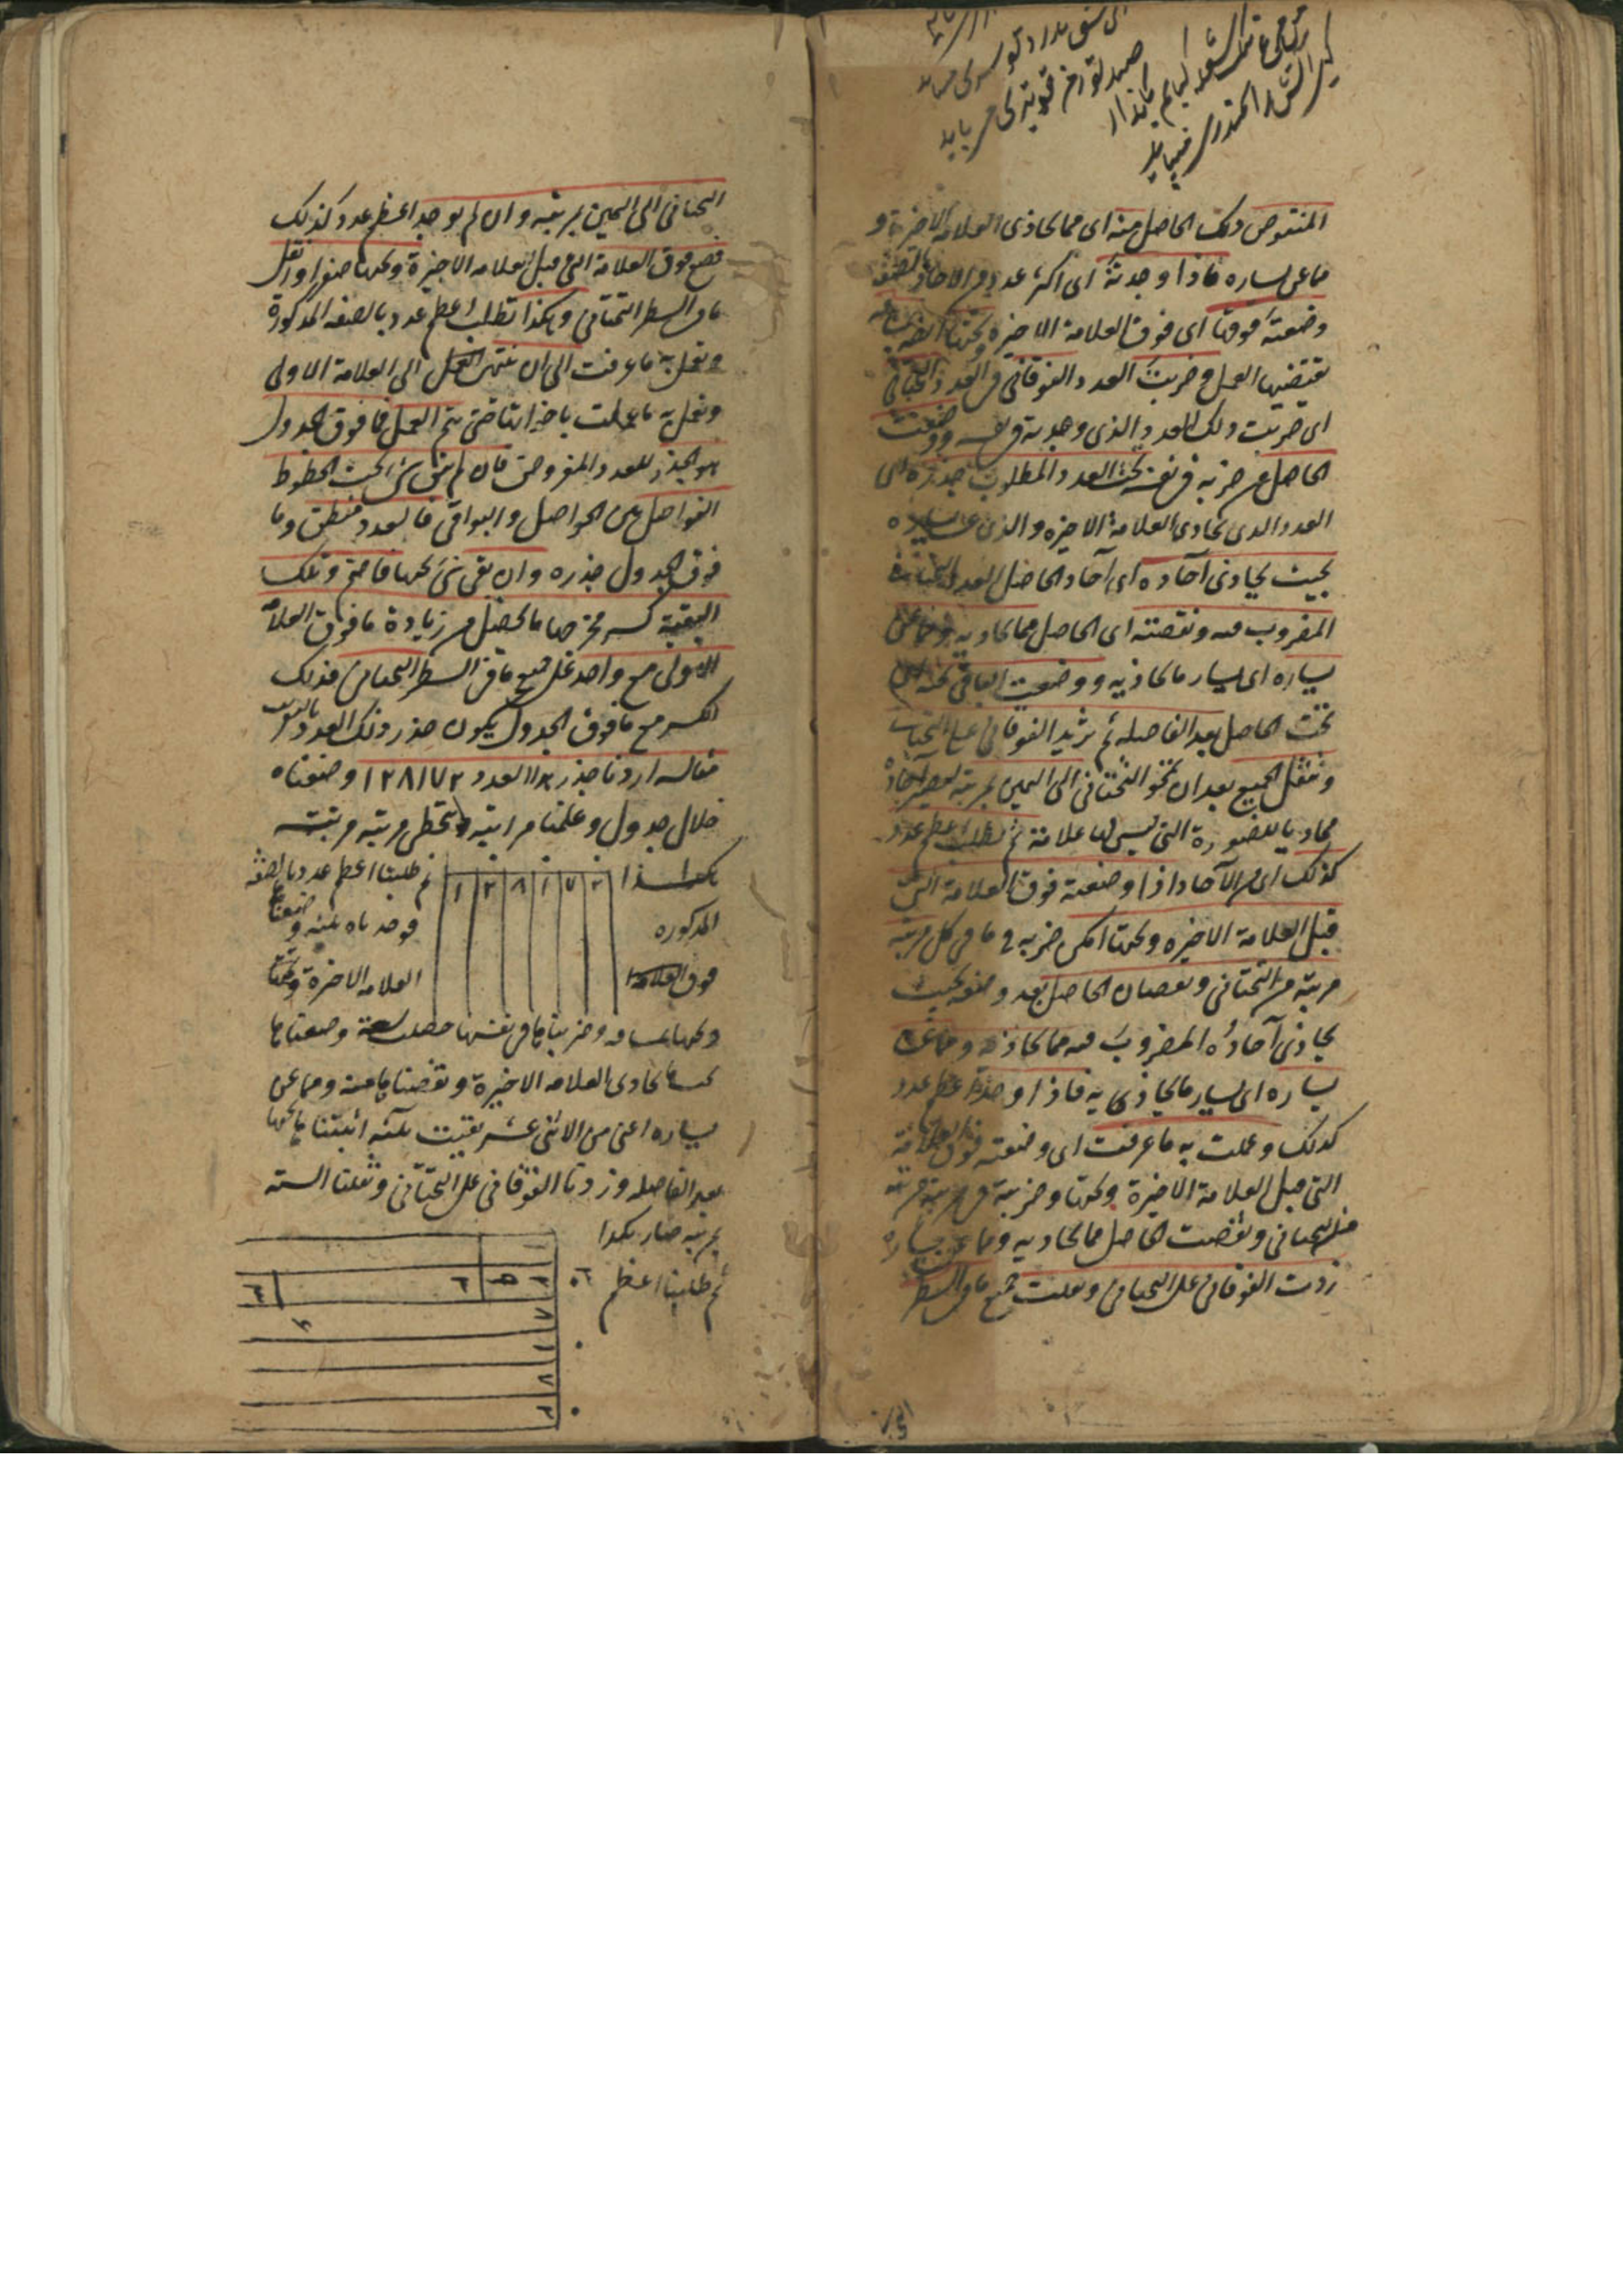 المنقوص ذلك الحاصل منه اى مما يحاذى العلامة الاخيرة و
ما عن يساره فاذا وجدته اى اكثر عدد من الاحاد بالصفة
وضعته فوقها اى فوق العلامة الاخيرة وتحتها
يقتضيها العمل وضربت العدد الفوقانى فى العدد التحتانى
اى ضربت ذلك العدد الذى وجدته فى نفسه ووضعت
الحاصل من ضربه فى نفسه تحت العدد المطلوب جذره اى
العدد الذى يحاذى العلامة الاخيرة والذى عن يساره
بحيث يحاذى آحاده اى آحاد الحاصل العدد التحتانى
المضروب فيه ونقصته اى الحاصل مما يحاذيه ومما عن
يساره اى يسار ما يحاذيه ووضعت الباقى تحته اى
تحت الحاصل بعد الفاصلة ثم تزيد الفوقانى على التحتانى
وتنقل الجميع بعد ان تمحو التحتانى الى اليمين بمرتبة ليصير آحاده
محاذيا للصورة التى ليس لها علامة ثم تطلب اعظم عدد
كذلك اى من الآحاد اذا وضعته فوق العلامة التى
قبل العلامة الاخيرة وتحتها امكن ضربه فى ما فى كل مرتبة
مرتبة من التحتانى ونقصان الحاصل بعد وضعه بحيث
يحاذى آحاده المضروب فيه مما يحاذيه ومما عن
يساره اى يسار ما يحاذى به فاذا وجد اعظم عدد
كذلك وعملت به ما عرفت اى وضعته فوق العلامة
التى قبل العلامة الاخيرة وتحتها وضربته فى مرتبة مرتبة
من التحتانى ونقصت الحاصل مما يحاذيه ومما عن يساره
زدت الفوقانى على التحتانى ونقلت جميع ما فى السطر
التحتانى الى اليمين بمرتبة وان لم يوجد اعظم عدد كذلك
فضع فوق العلامة التى قبل العلامة الاخيرة وتحتها صفرا وانقل
ما فى السطر التحتانى وهكذا تطلب اعظم عدد بالصفة المذكورة
وتعمل به ما عرفت الى ان ينتهى العمل الى العلامة الاولى
وتعمل به ما عملت باخواتها حتى يتم العمل فما فوق الجدول
هو الجذر للعدد المفروض فان لم يبق شئ تحت الخطوط
الفواصل بين الحواصل والبواقى فالعدد منطق وما
فوق الجدول جذره وان بقى شئ تحتها فاصم وتلك
البقية كسر مخرجها ما يحصل من زيادة ما فوق العلامة
الاولى مع واحد على جميع ما فى السطر التحتانى فذلك
الكسر مع ما فوق الجدول يكون جذر ذلك العدد بالتقريب
مثاله اردنا جذر هذا العدد ١٢٨١٧٢ وضعناه
خلال جدول وعلمنا مراتبه بتخطى مرتبة مرتبة
هكذا
١ ٢ ٨ ١ ٧ ٢
ثم طلبنا اعظم عدد بالصفة
المذكورة
فوجدناه ثلثة وضعناها
فوق العلامة
العلامة الاخيرة وتحتها
وتحتها بمسافة وضربناها فى نفسها حصلت تسعة وضعناها
تحت ما يحاذى العلامة الاخيرة ونقصناها منه ومما عن
يساره اعنى من الاثنى عشر بقيت ثلثة اثبتناها تحتها
بعد الفاصلة وزدنا الفوقانى على التحتانى ونقلنا الستة
بمرتبة صار هكذا
ثم طلبنا اعظم